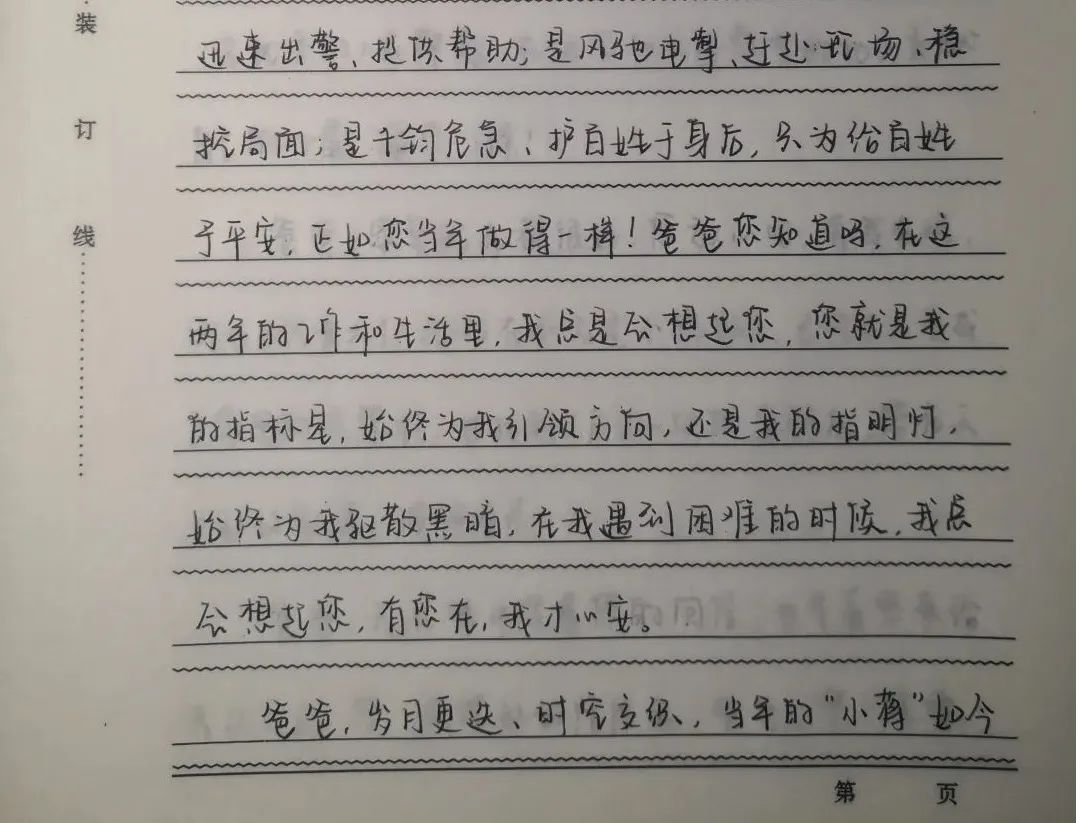 装
订
线
迅速出警、提供帮助;是风驰电掣、赶赴现场、稳
控局面;是千钧危急、护百姓于身后,只为给百姓
予平安,正如您当年做得一样!爸爸您知道吗,在这
两年的工作和生活里,我总是会想起您,您就是我
的指标星,始终为我引领方向,还是我的指明灯,
始终为我驱散黑暗,在我遇到困难的时候,我总
会想起您,有您在,我才心安。
爸爸,岁月更迭、时空交织,当年的“小蒋”如今
第 页